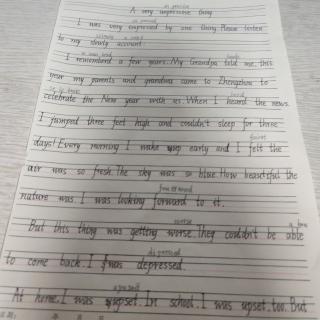 A very impressive thing
I was very impressed by one thing. Please listen
to my slowly account:
I remembered a few years. My Grandpa told me, this
year my parents and grandma came to Zhengzhou to
celebrate the New year with us. When I heard the news.
I jumped three feet high and couldn't sleep for three
days! Every morning I wake up early and I felt the
air was so fresh. The sky was so blue. How beautiful the
nature was. I was looking forward to it.
But this thing was getting worse. They couldn't be able
to come back. I was depressed.
At home, I was upset. In school, I was upset, too. But